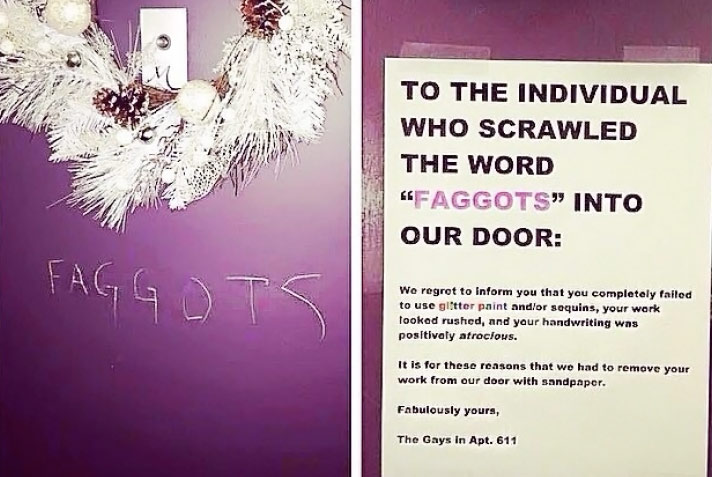 FAGGOTS
TO THE INDIVIDUAL
WHO SCRAWLED
THE WORD
“FAGGOTS” INTO
OUR DOOR:
We regret to inform you that you completely failed
to use glitter paint and/or sequins, your work
looked rushed, and your handwriting was
positively atrocious.
It is for these reasons that we had to remove your
work from our door with sandpaper.
Fabulously yours,
The Gays in Apt. 611